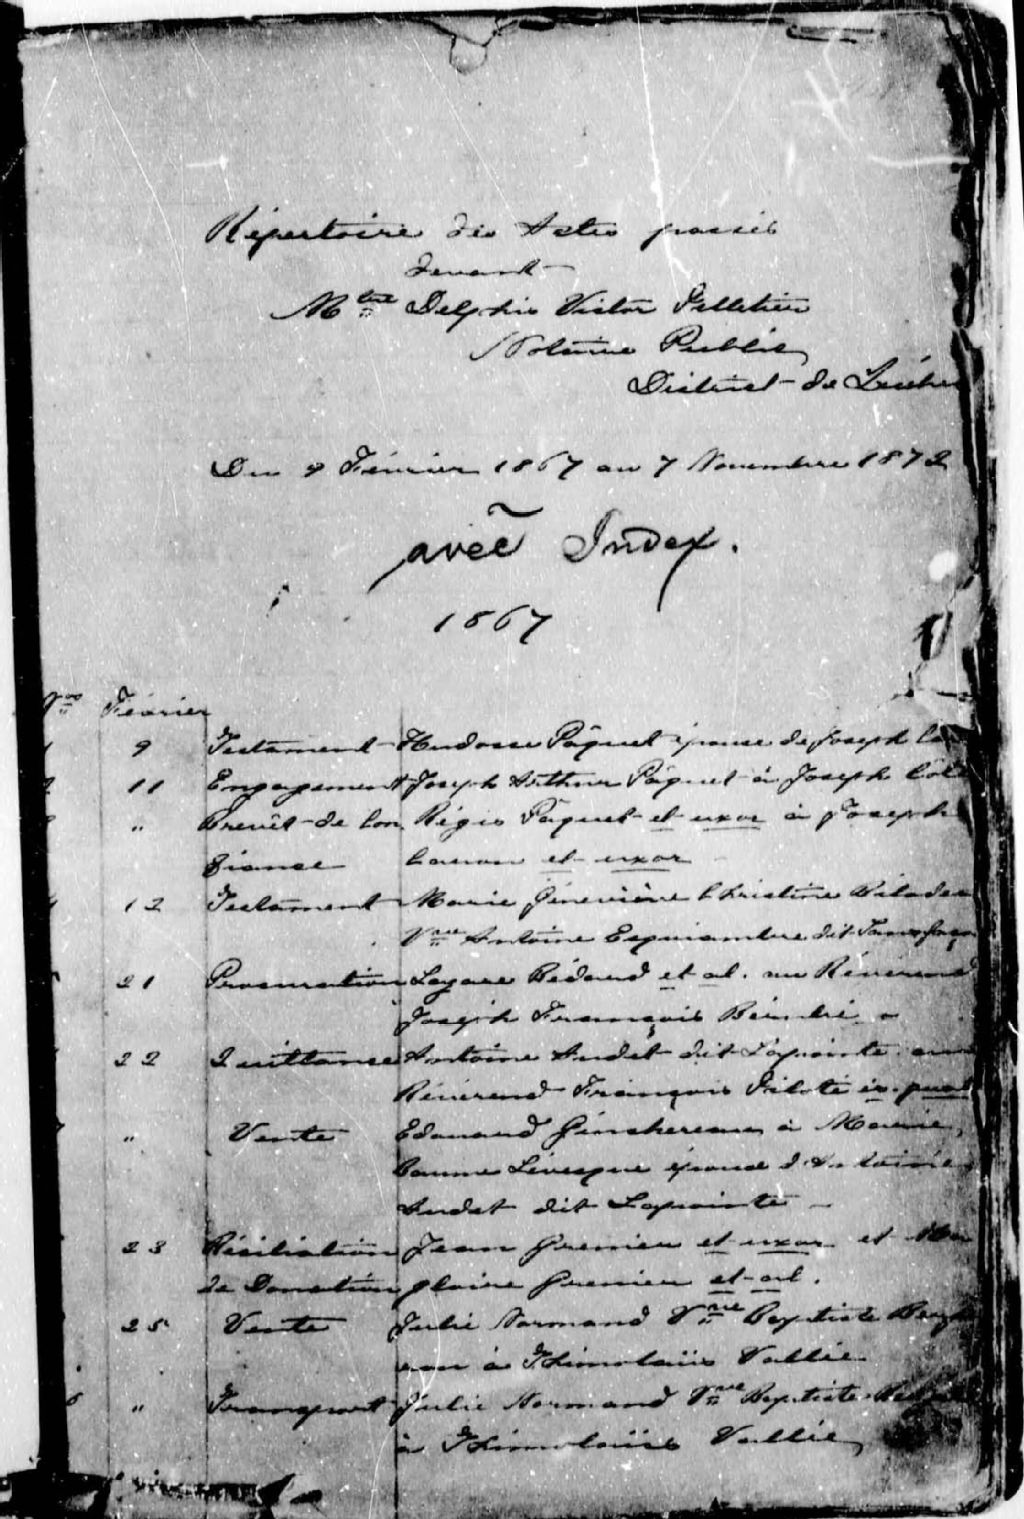 Répertoire des Actes passés
devant
Mtre Delphis Victor Pelletier
Notaire Public
District de Québec
Du 9 Février 1867 au 7 Novembre 1872
avec Index.
1867
Nos Février
9 Testament Paquet épouse de Joseph
11 Engagement Joseph Arthur Pâquet à Joseph Côté
" Brevêt de Con Régis Pâquet et uxor à Joseph
fiance et uxor
12 Testament Marie Géneviève Christine
Vve Antoine dit Sansfaçon
21 Procuration Lazare Bédard et al. au Révérend
Joseph François
22 Quittance Antoine Audet dit Lapointe au
Révérend François Pilote ès qual
" Vente Edouard à
Levesque épouse d'Antoine
Audet dit Lapointe
23 Résiliation Jean Grenier et uxor et Ma
de Donation gloire Grenier et al.
25 Vente Julie Normand Vve Baptiste
à Vallée
" Transport Julie Normand Vve Baptiste
à Vallée